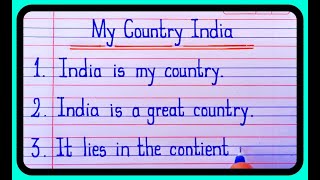 My Country India
1. India is my country.
2. India is a great country.
3. It lies in the contient